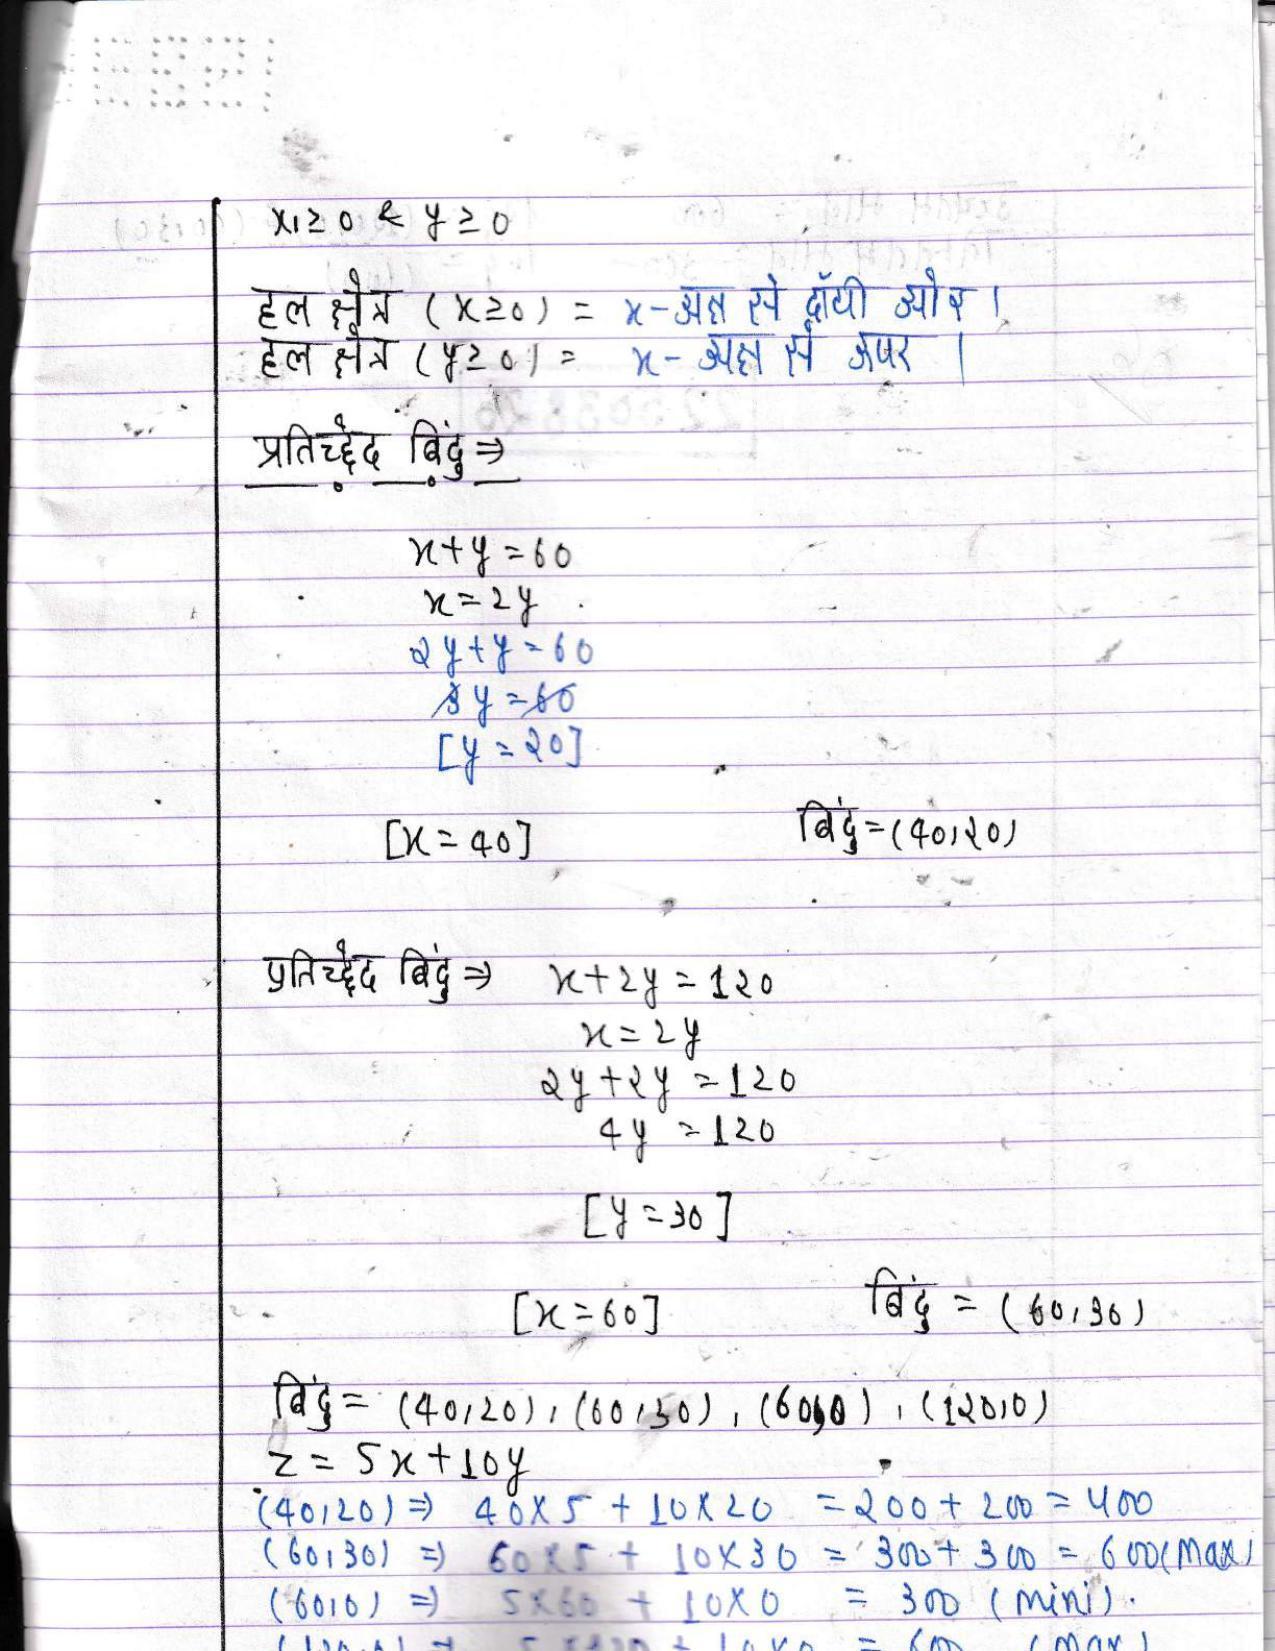 x≥0 & y≥0
हल क्षेत्र (x≥0) = x-अक्ष से दाँयी ओर।
हल क्षेत्र (y≥0) = x-अक्ष से ऊपर।
प्रतिच्छेद बिंदु ⇒
x+y=60
x=2y
2y+y=60
3y=60
[y=20]
[x=40] बिंदु=(40,20)
प्रतिच्छेद बिंदु ⇒ x+2y=120
x=2y
2y+2y=120
4y=120
[y=30]
[x=60] बिंदु = (60,30)
बिंदु = (40,20), (60,30), (60,0), (120,0)
z = 5x+10y
(40,20) ⇒ 40×5 + 10×20 = 200+200 = 400
(60,30) ⇒ 60×5 + 10×30 = 300+300 = 600(max)
(60,0) ⇒ 5×60 + 10×0 = 300 (mini).
(120,0) ⇒ 5×120 + 10×0 = 600 (max)